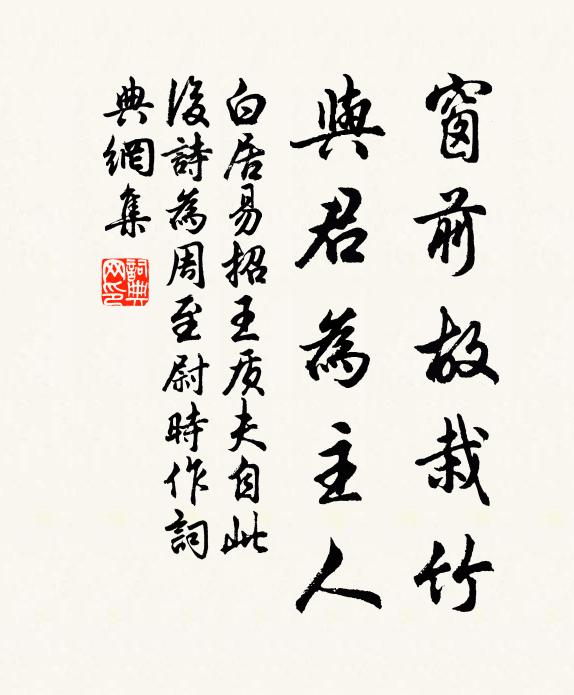 窗前故栽竹
與君為主人
白居易招王质夫自此
後詩為周至尉時作詞
典網集
詞典网印